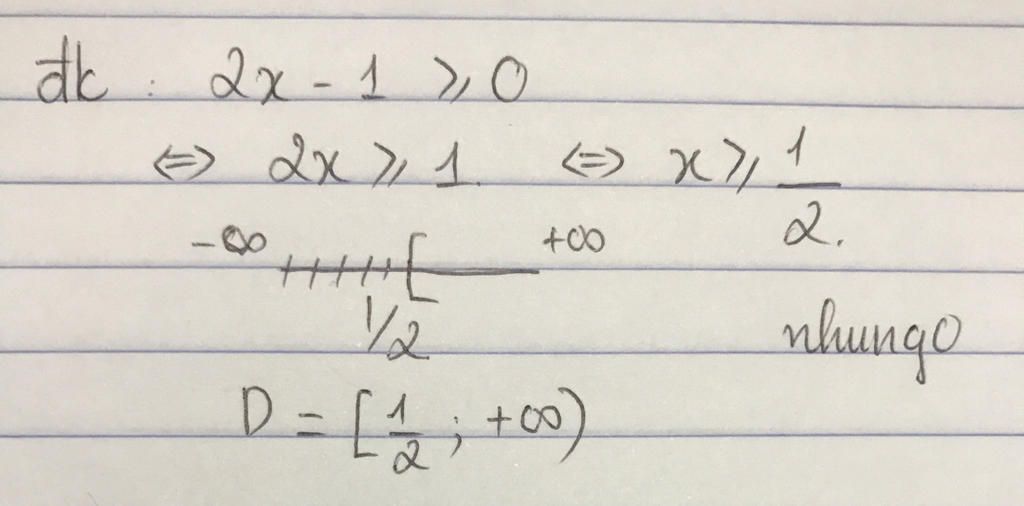 đk : 2x - 1 ⩾ 0
⇔ 2x ⩾ 1 ⇔ x ⩾ 1/2.
-∞ +∞
1/2
nhungo
D = [1/2 ; +∞)